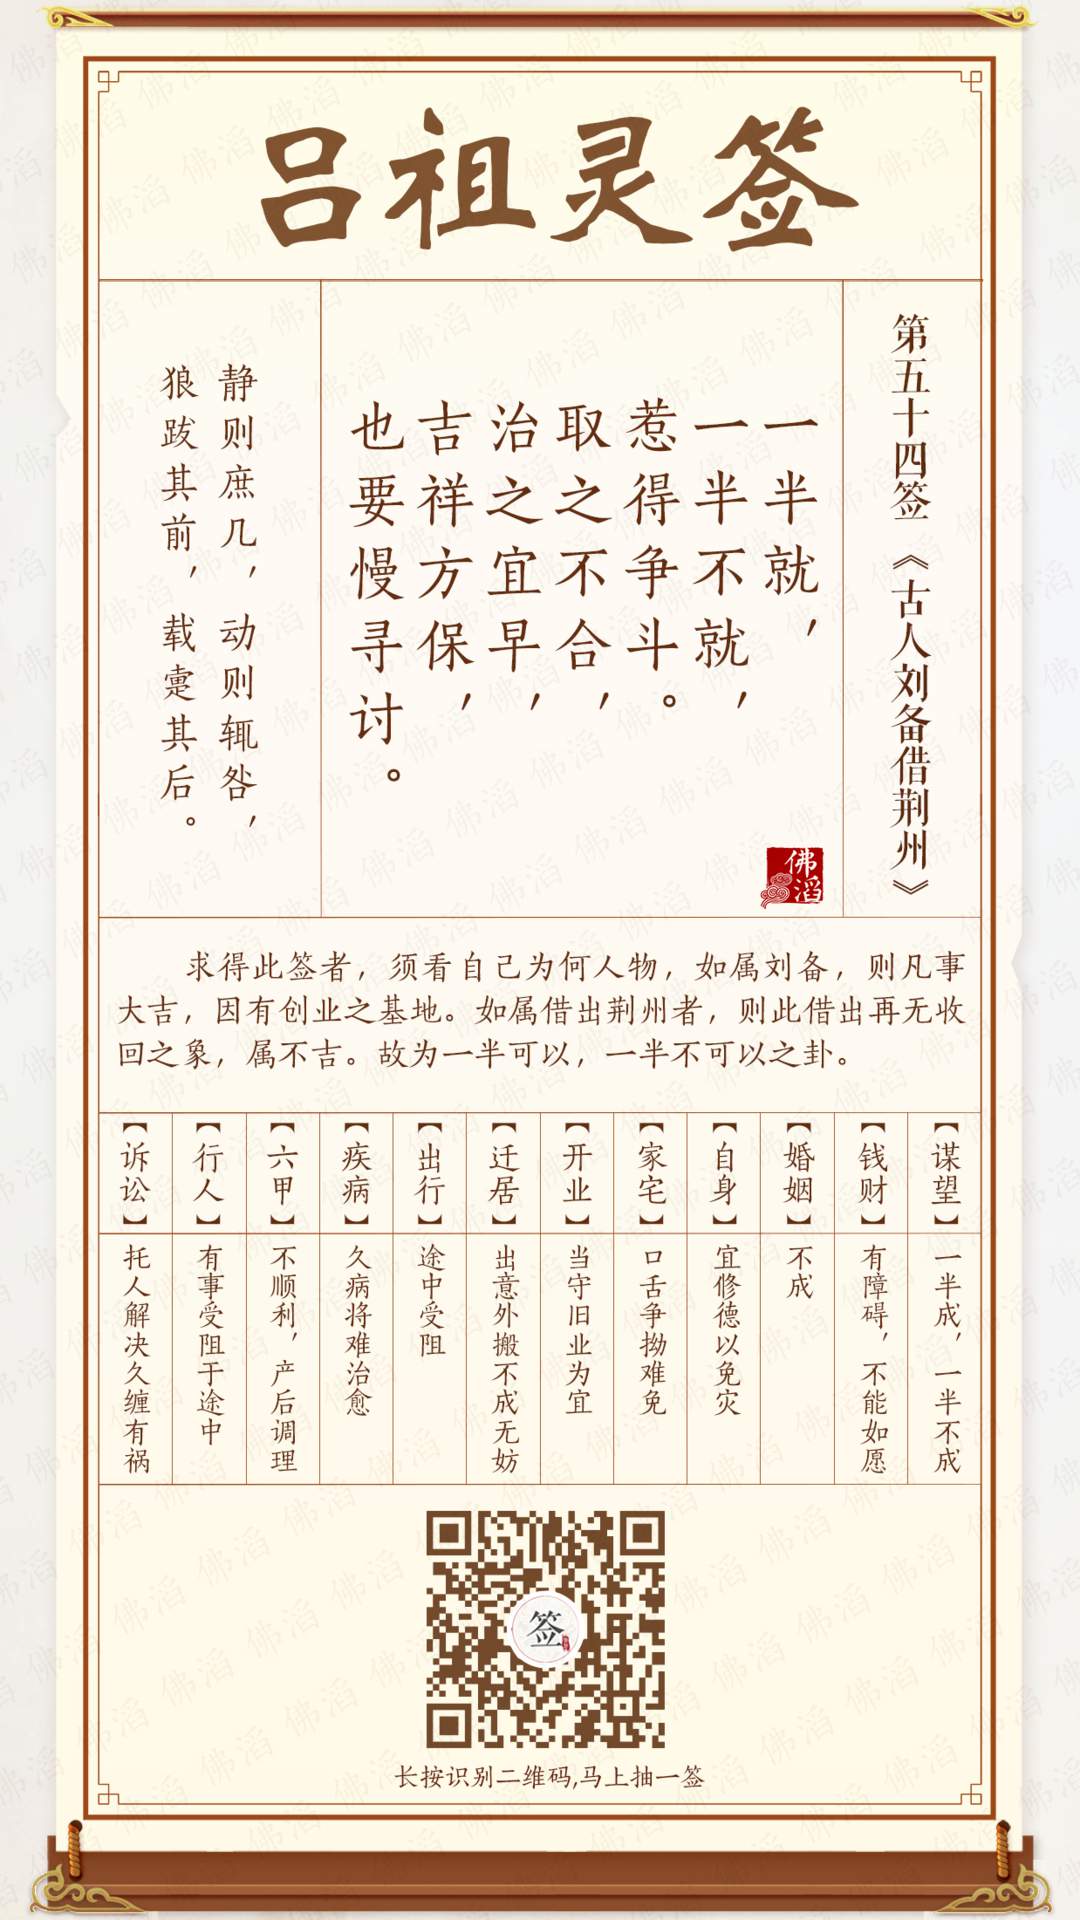 吕祖灵签
第五十四签《古人刘备借荆州》
一半就，
一半不就，
惹得争斗。
取之不合，
治之宜早，
吉祥方保，
也要慢寻讨。
佛滔
静则庶几，动则辄咎，
狼跋其前，载疐其后。
求得此签者，须看自己为何人物，如属刘备，则凡事
大吉，因有创业之基地。如属借出荆州者，则此借出再无收
回之象，属不吉。故为一半可以，一半不可以之卦。
【谋望】
一半成，一半不成
【钱财】
有障碍，不能如愿
【婚姻】
不成
【自身】
宜修德以免灾
【家宅】
口舌争拗难免
【开业】
当守旧业为宜
【迁居】
出意外搬不成无妨
【出行】
途中受阻
【疾病】
久病将难治愈
【六甲】
不顺利，产后调理
【行人】
有事受阻于途中
【诉讼】
托人解决久缠有祸
签
长按识别二维码,马上抽一签